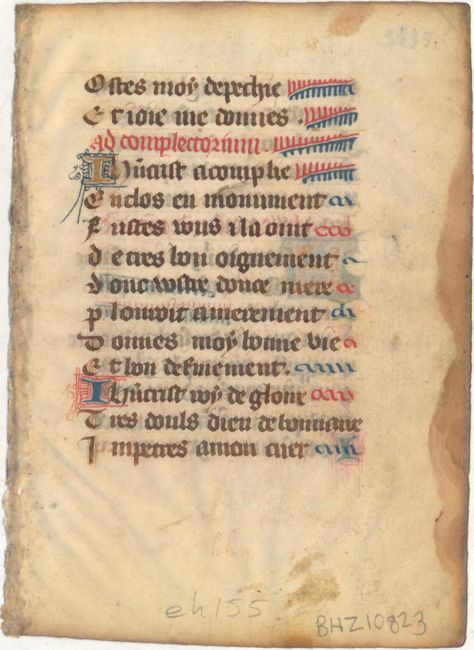 Ostes moy depechie
Et ioie me donnes.
Ad complectorium.
Ihūcrist acomplie
Enclos en monument
Fustes vous ila oint
De tres bon oignement
Dont vostre douce mere
Plouroit amerement
Donnes moy bonne vie
Et bon definement.
Ihūcrist roy de glorie
Tres douls dieu de
Impetres a mon cuer
eh155
BHZ10823